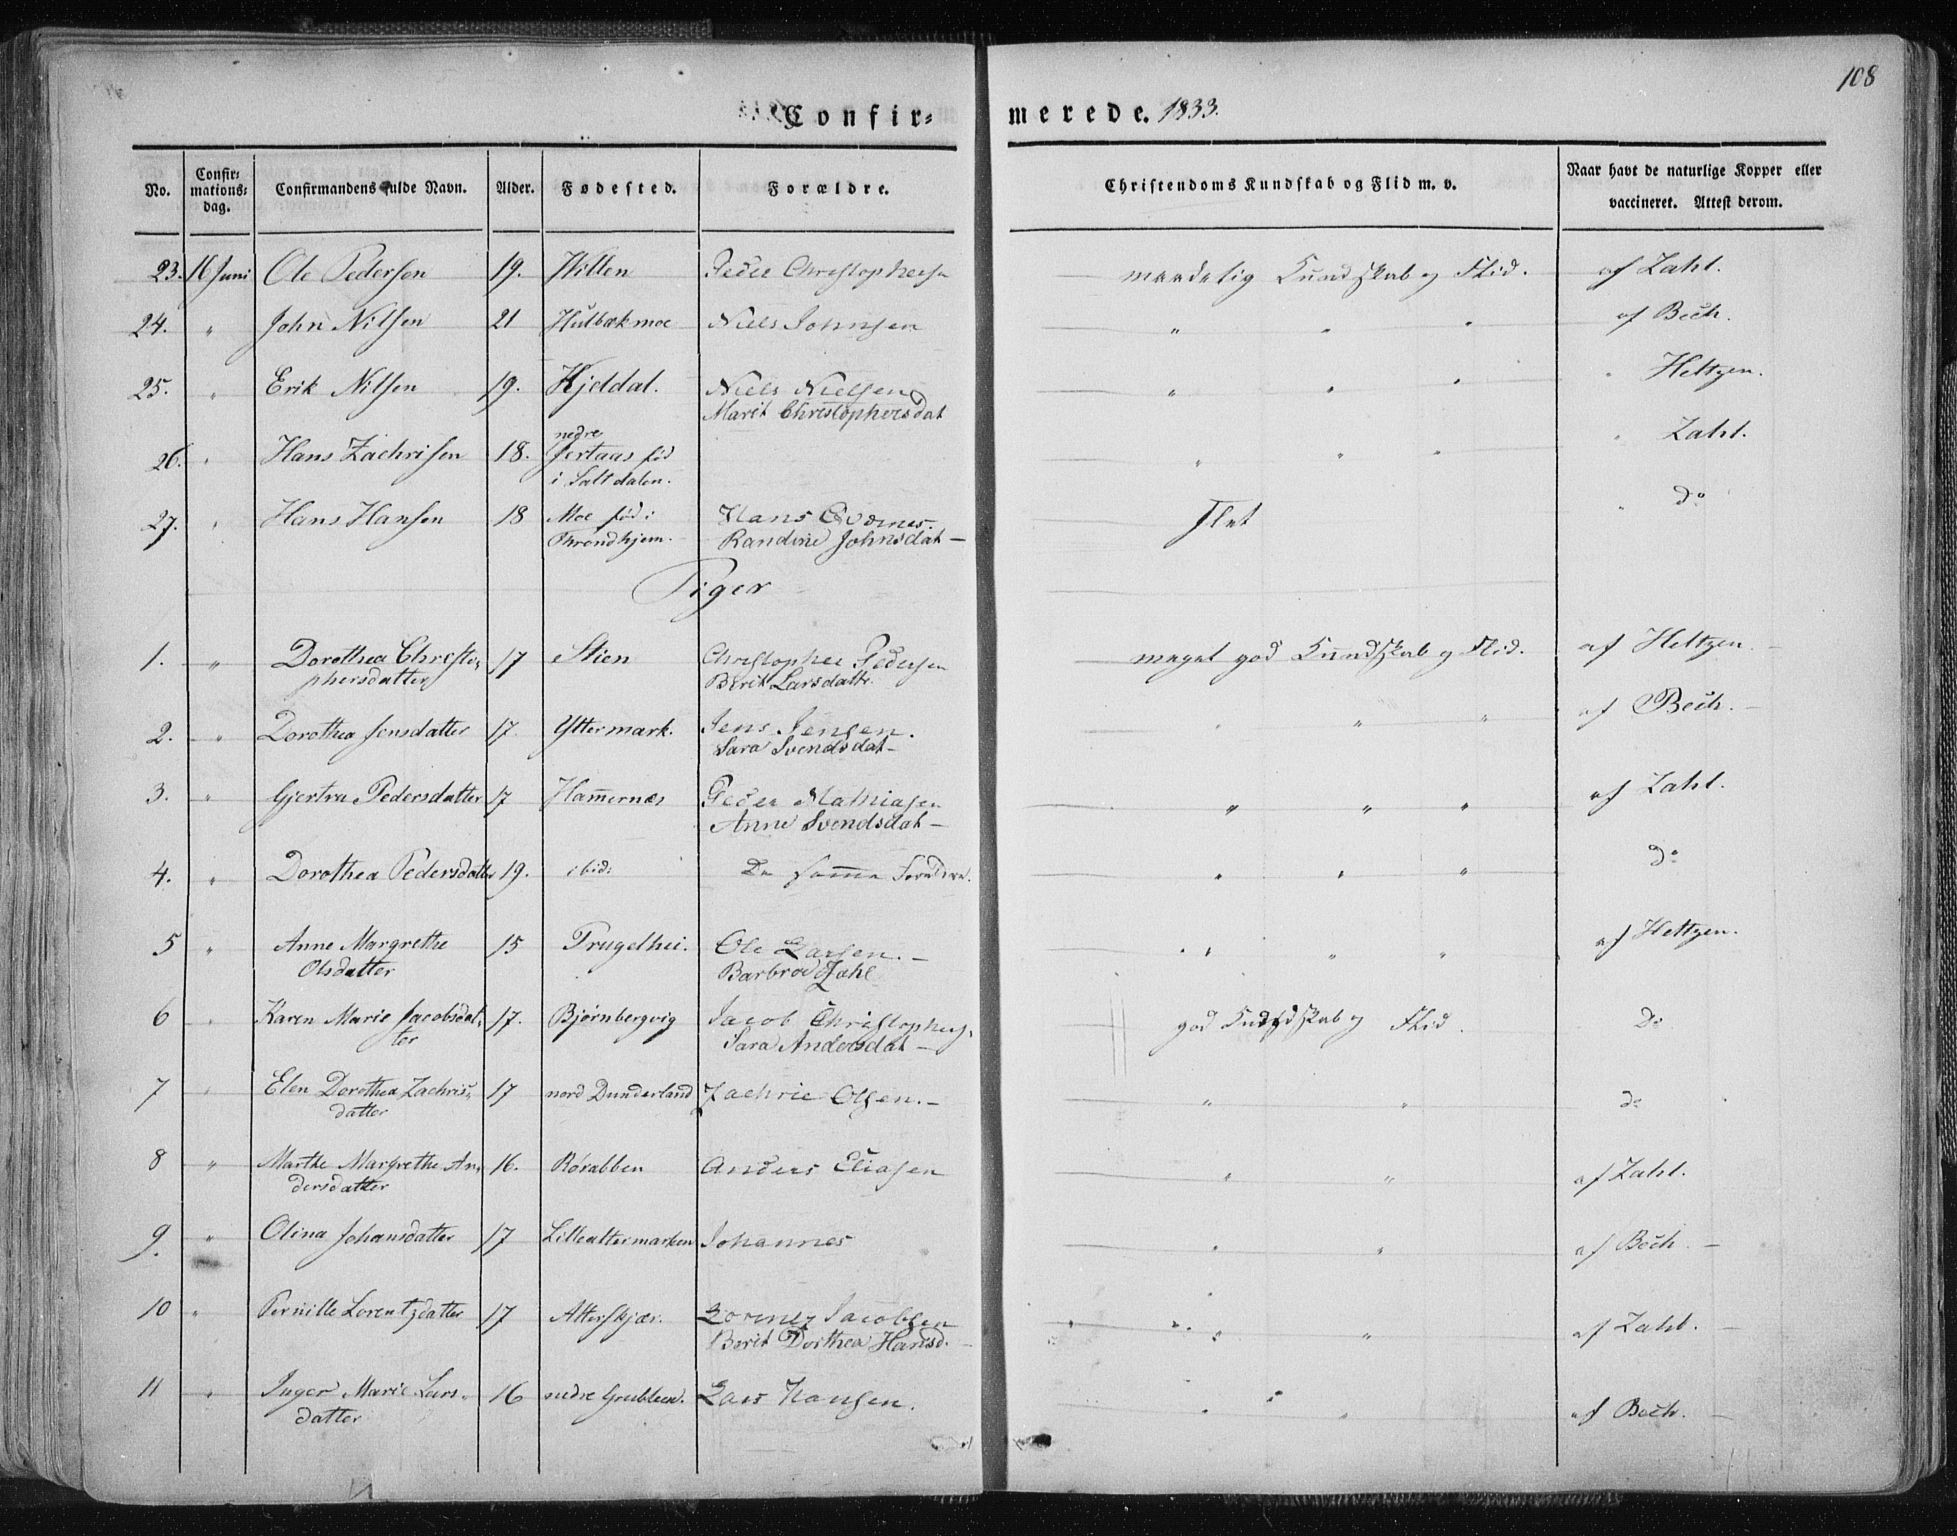 108
Confir=
merede. 1833.
No.
Confir=
mations=
dag.
Confirmandens fulde Navn.
Alder.
Fødested.
Forældre.
Christendoms Kundskab og Flid m. v.
Naar havt de naturlige Kopper eller
vaccineret. Attest derom.
23. 16 Juni Ole Pedersen 19. Hillen Peder Christophersen maadelig Kundskab og Flid. af Zahl.
24. " John Nilsen 21 Hulbækmoe Niels Johnsen " " " af Bech.
25. " Erik Nilsen 19. Hjeldal. Niels Nielsen " " " " Heltzen.
Marit Christophersdat
nedre
26. " Hans Zachrisen 18. Jertaas fød " " " " Zahl.
i Saltdalen.
27. " Hans Hansen 18 Moe fød i Hans " do
Throndhjem. Randine Johnsdat—
Piger
1. " Dorothea Christo= 17 Stien Christopher Pedersen meget god Kundskab og Flid. af Heltzen.
phersdatter Berit Larsdattr.
2. " Dorothea Jensdatter 17. Yttermark. Jens Jensen. " " " af Bech. —
Sara Svendsdat—
3. " Gjertru Pedersdatter 17 Hammernæs Peder Mathiasen " " " af Zahl.
Anne Svendsdat—
4. " Dorothea Pedersdatter 19. ibid: De samme Forældre. " " " do
5 " Anne Margrethe 15 Trugelhei. Ole Larsen. — " " " af Heltzen.
Olsdatter Barbro Zahl
6 " Karen Marie Jacobsdat= 17. Bjørnbergvig Jacob Christophers. god Kundskab og Flid. Do
ter Sara Andersdat—
7 " Elen Dorothea Zachris= 17 nord Dunderland Zachrie Olsen. — " " do
datter
8 " Marthe Margrethe An= 16. Rørabben Anders Eliasen " " af Zahl.
dersdatter
9. " Olina Johansdatter 17 Lillealtermarken Johannes " " af Bech. —
10 " Pernille Lorentzdatter 17 Alterskjær. Lorentz Jacobsen " " af Zahl. —
Berit Dorthea Hansd. —
11 " Inger Marie Lars= 16 nedre Grubleen. Lars Hansen. " " af Bech. —
datter